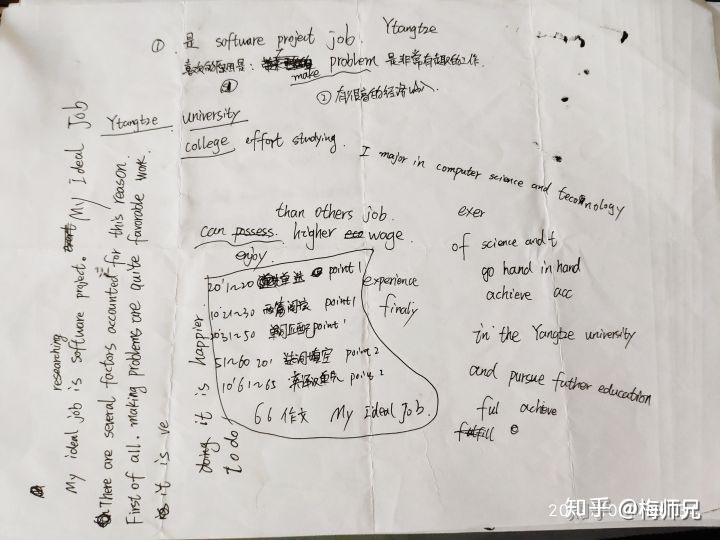 ① 是 software project job. Ytangtze
喜欢的应用是: make problem 是非常有趣的工作.
①
② 有很高的经济收入.
Ytangtze university
college effort studying.
I major in computer science and tecnology
than others job.
can possess. higher wage.
enjoy
20' 1~20 point 1
10' 21~30 两篇阅读 point 1
31~50 单词匹配 point 1
51~60 20' 选词填空 point 2
10' 61~65 英译汉重先 point 2
66 作文 My Ideal Job.
experience
finaly
exer
of science and t
go hand in hand
achieve acc
in the Yangtze university
and pursue futher education
ful achieve
fulfill
My Ideal Job
researching
My ideal job is software project.
There are several factors accounted for this reason.
First of all. making problems are quite favorable work.
it is ve
doing it is happier.
to do
知乎 @梅师兄